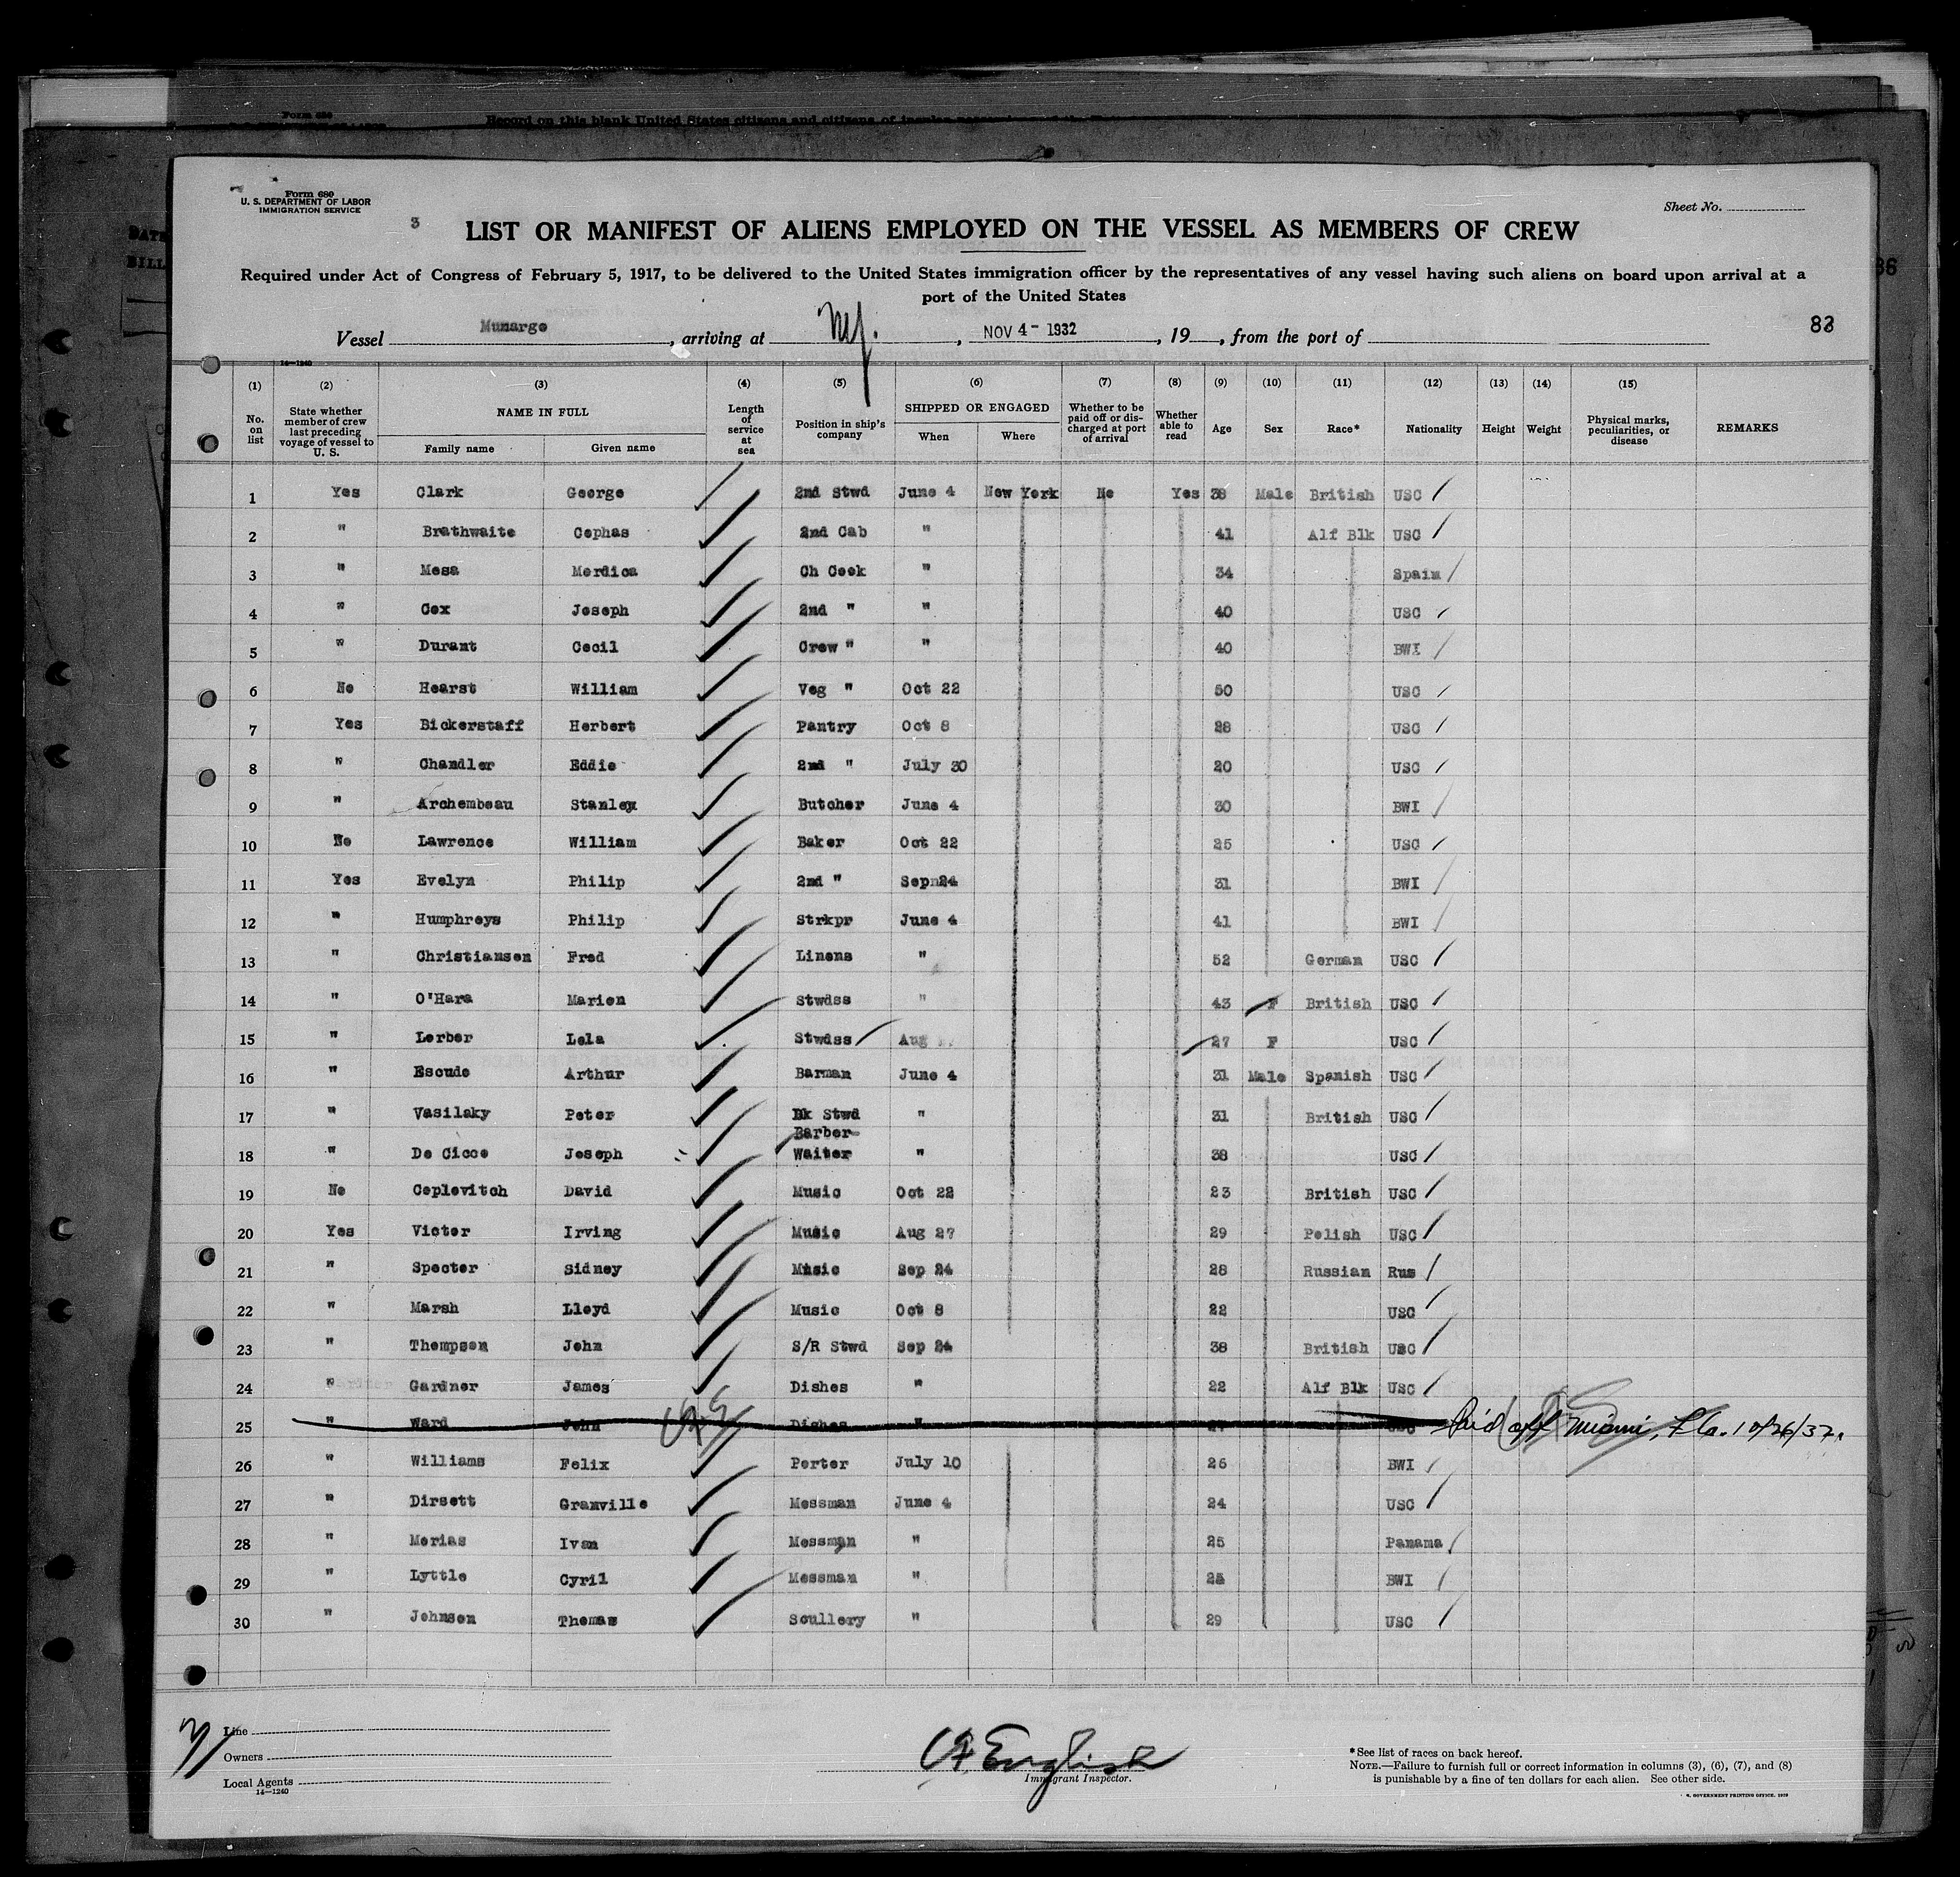 Form 689
U. S. DEPARTMENT OF LABOR
IMMIGRATION SERVICE
Sheet No.
3
LIST OR MANIFEST OF ALIENS EMPLOYED ON THE VESSEL AS MEMBERS OF CREW
Required under Act of Congress of February 5, 1917, to be delivered to the United States immigration officer by the representatives of any vessel having such aliens on board upon arrival at a
port of the United States
Vessel Munargo, arriving at NY., NOV 4- 1932, 19 , from the port of
83
14—1240
(1) (2) (3) (4) (5) (6) (7) (8) (9) (10) (11) (12) (13) (14) (15)
No. on list State whether member of crew last preceding voyage of vessel to U. S. NAME IN FULL Family name Given name Length of service at sea Position in ship's company SHIPPED OR ENGAGED When Where Whether to be paid off or discharged at port of arrival Whether able to read Age Sex Race* Nationality Height Weight Physical marks, peculiarities, or disease REMARKS
1 Yes Clark George 2nd Stwd June 4 New York No Yes 38 Male British USC
2 " Brathwaite Cephas 2nd Cab " 41 Alf Blk USC
3 " Mesa Merdica Ch Cook " 34 Spain
4 " Cox Joseph 2nd " " 40 USC
5 " Durant Cecil Crew " " 40 BWI
6 No Hearst William Veg " Oct 22 50 USC
7 Yes Bickerstaff Herbert Pantry Oct 8 28 USC
8 " Chandler Eddie 2nd " July 30 20 USC
9 " Archembeau Stanley Butcher June 4 30 BWI
10 No Lawrence William Baker Oct 22 25 USC
11 Yes Evelyn Philip 2nd " Sepn24 31 BWI
12 " Humphreys Philip Strkpr June 4 41 BWI
13 " Christiansen Fred Linens " 52 German USC
14 " O'Hara Marion Stwdss " 43 F British USC
15 " Lerber Lela Stwdss Aug 27 F USC
16 " Escude Arthur Barman June 4 31 Male Spanish USC
17 " Vasilaky Peter Dk Stwd " 31 British USC
Barber
18 " De Cicco Joseph Waiter " 38 USC
19 No Ceplovitch David Music Oct 22 23 British USC
20 Yes Victor Irving Music Aug 27 29 Polish USC
21 " Specter Sidney Music Sep 24 28 Russian Rus
22 " Marsh Lloyd Music Oct 8 22 USC
23 " Thompson John S/R Stwd Sep 24 38 British USC
24 " Gardner James Dishes " 22 Alf Blk USC
25 " Ward John Dishes " 27 USC Paid off Miami, Fla. 10/26/32.
26 " Williams Felix Porter July 10 26 BWI
27 " Dirsett Granville Messman June 4 24 USC
28 " Merias Ivan Messman " 25 Panama
29 " Lyttle Cyril Messman " 25 BWI
30 " Johnson Thomas Scullery " 29 USC
Line
Owners
Local Agents
14—1240
English
Immigrant Inspector.
* See list of races on back hereof.
NOTE.—Failure to furnish full or correct information in columns (3), (6), (7), and (8)
is punishable by a fine of ten dollars for each alien. See other side.